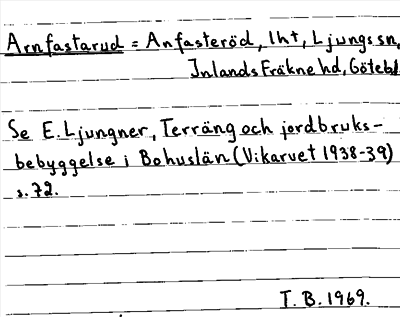 Arnfastarud = Anfasteröd, lht, Ljungs sn,
Inlands Fräkne hd, Göteb.l
Se E. Ljungner, Terräng och jordbruks-
bebyggelse i Bohuslän (Vikarvet 1938-39)
s. 72.
T. B. 1969.